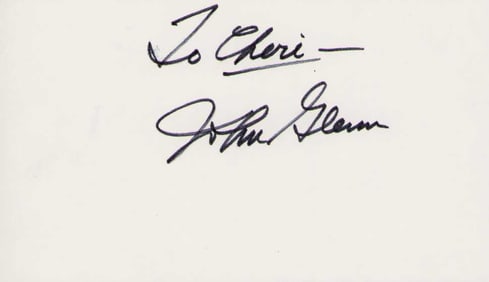 To Cheri —
John Glenn